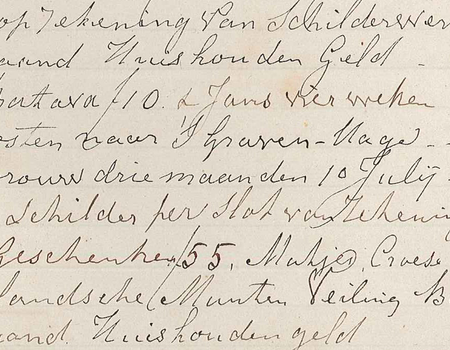 op Tekening van Schilderwer
aand Huishouden Geld -
batava f 10. & Jans vier weken
osten naar 's Graven-Hage -
rouw drie maanden 10 Julij -
Schilder per slot van Tekenin
Geschenken f 55, Matje Croese
landsche Munten Veiling B
aand Huishouden geld